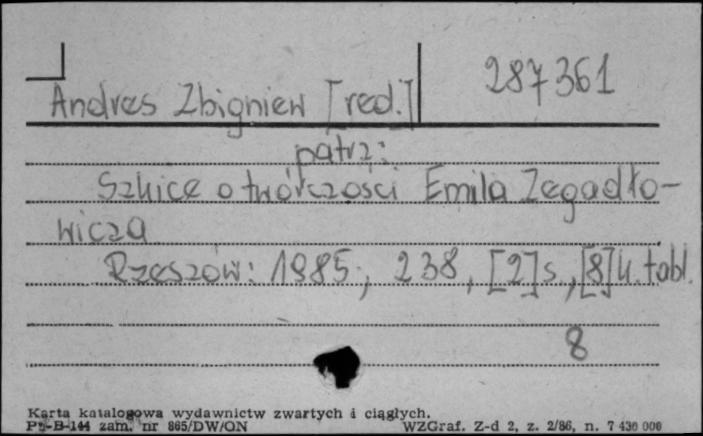 287361
Andres Zbigniew [red.]
patrz:
Szkice o twórczosci Emila Zegadło-
wicza
Rzeszów: 1985, 238, [2] s., [8] k. tabl.
8
Karta katalogowa wydawnictw zwartych i ciągłych.
Pu-B-144 zam. nr 865/DW/ON WZGraf. Z-d 2, z. 2/86, n. 7 430 000